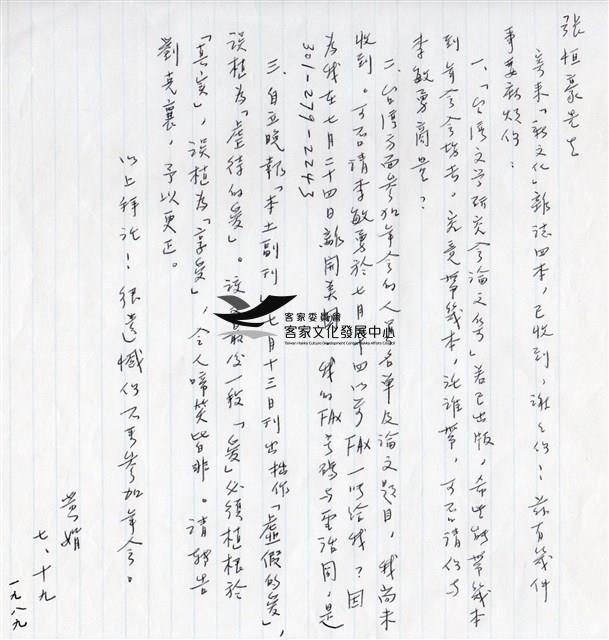 張恒豪先生
寄來「新文化」雜誌四本，已收到，謝々你！茲有幾件
事要麻煩你：
一、「台灣文学研究会論文集」若已出版，希望能帶幾本
到年会会場去。究竟帶幾本，託誰帶，可否請你与
李敏勇商量？
二、台灣方面參加年会的人員名單及論文題目，我尚未
收到。可否請李敏勇於七月廿四以前FAX一份給我？因
為我在七月二十四日離開美國。我的FAX号碼与電話同，是
301-279-2243
三、自立晚報「本土副刊」七月十三日刊出拙作「虛假的愛」，
誤植為「虛待的愛」。該文最後一段「愛」必須植根於
「真实」，誤植為「享受」，令人啼笑皆非。請轉告
劉克襄，予以更正。
以上拜託！很遺憾你不再參加年会。
黃娟
七、十九
一九八九
客家委員會
客家文化發展中心
Taiwan Hakka Culture Development Center, Hakka Affairs Council